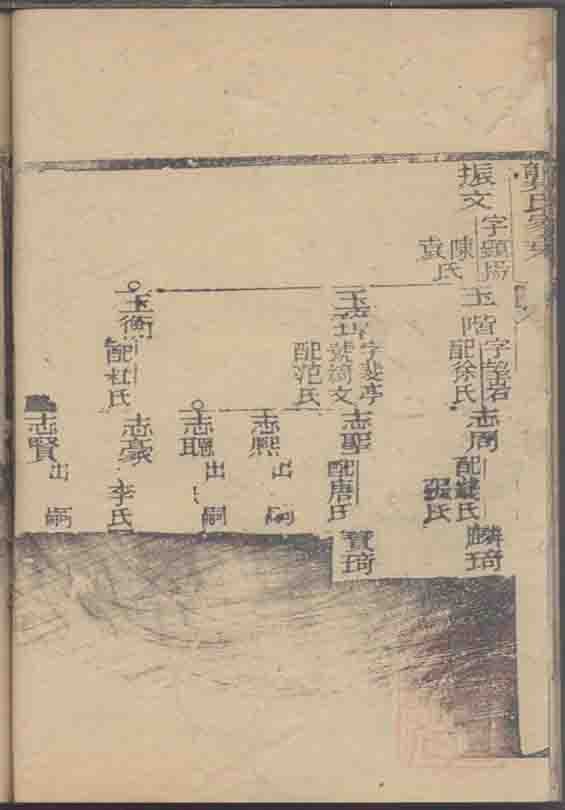 氏家
振文
字顯揚
陳
袁氏
玉階
字
配徐氏
志周
配
張氏
麟琦
玉
字斐亭
號綺文
配范氏
志聖
配唐氏
寶琦
志熙
出嗣
志聰
出嗣
玉衡
配杜氏
志豪
李氏
志賢
出嗣